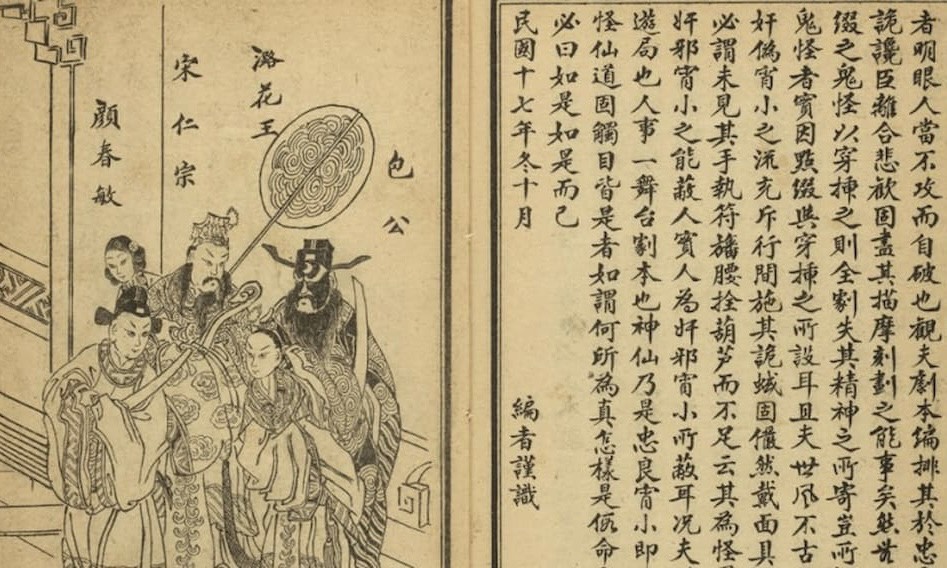 者明眼人當不攻而自破也觀夫劇本編排其於忠
詭讒臣離合悲歡固盡其描摩刻劃之能事矣然
綴之鬼怪以穿揷之則全劇失其精神之所寄豈所
鬼怪者實因點綴與穿揷之所設耳且夫世风不古
奸僞宵小之流充斥行間施其詭蜮固儼然戴面具
必謂未見其手執符旛腰拴葫芦而不足云其為怪
奸邪宵小之能蔽人實人為奸邪宵小所蔽耳况夫
遊局也人事一舞台劇本也神仙乃是忠良宵小即
怪仙道固觸目皆是者如謂何所為真怎樣是假命
必曰如是如是而已
民國十七年冬十月 編者謹識
包公
潞花王
宋仁宗
顏春敏